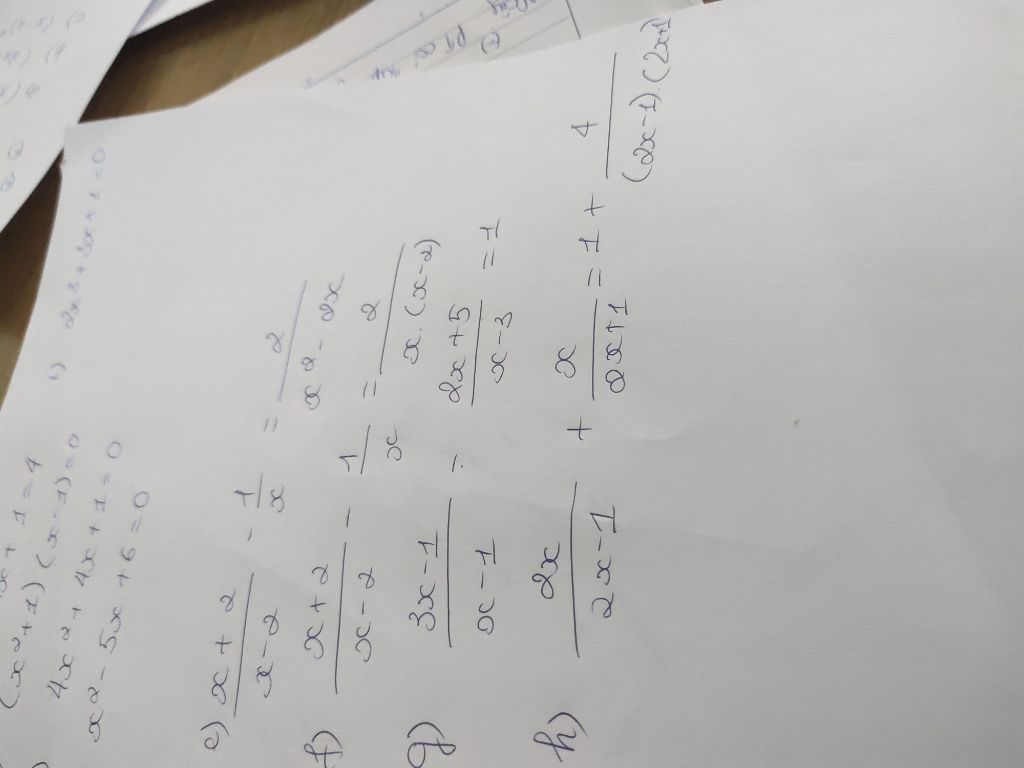 x + 1 = 4
(x² + 1) (x - 1) = 0
4x² + 4x + 1 = 0
x² - 5x + 6 = 0
2x³ + 3x + 1 = 0
e) (x + 2)/(x - 2) - 1/x = 2/(x² - 2x)
f) (x + 2)/(x - 2) - 1/x = 2/(x . (x - 2))
g) (3x - 1)/(x - 1) - (2x + 5)/(x - 3) = 1
h) 2x/(2x - 1) + x/(2x + 1) = 1 + 4/((2x - 1) . (2x + 1)